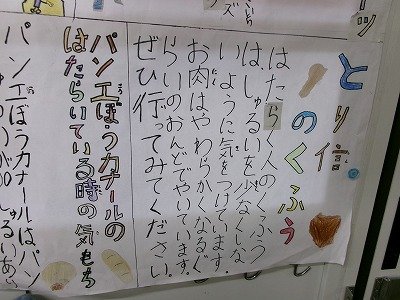 ーツ
ズ
とり信
のくふう
はたらく人のくふう
は、しゅるいを少なくしな
いように気をつけています。
お肉はやわらかくなるぐ
らいのおんどでやいています。
ぜひ行ってみてください。
パン工ぼうカナールの
はたらいている時の気もち
パン工ぼうカナールはパン
しゅるいあ